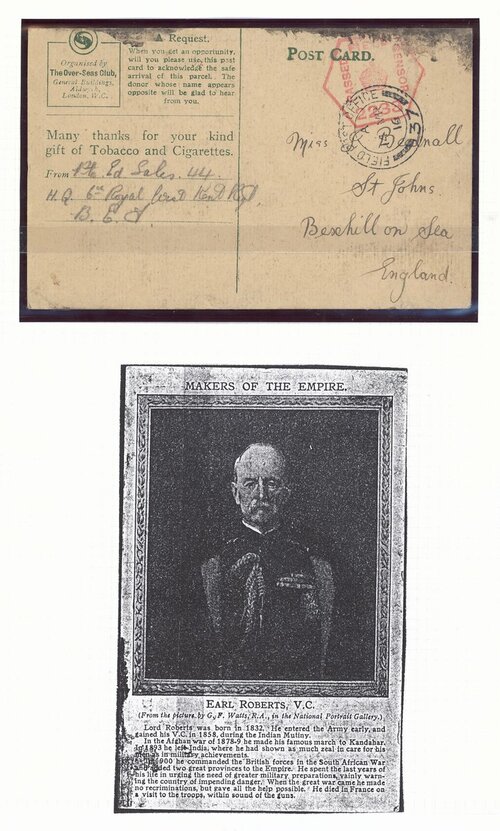 Organised by
The Over-Seas Club,
General Buildings,
Aldwych,
London, W.C.
A Request.
When you get an opportunity,
will you please use this post
card to acknowledge the safe
arrival of this parcel. The
donor whose name appears
opposite will be glad to hear
from you.
Many thanks for your kind
gift of Tobacco and Cigarettes.
From Pte. Ed Sales. 44.
H.Q. 6th Royal West Kent Rgt,
B. E. F
POST CARD.
2233
FIELD POST OFFICE
37
Miss Bednall
St Johns.
Bexhill on Sea
England.
MAKERS OF THE EMPIRE.
EARL ROBERTS, V.C.
(From the picture by G. F. Watts, R.A., in the National Portrait Gallery.)
Lord Roberts was born in 1832. He entered the Army early, and
gained his V.C. in 1858, during the Indian Mutiny.
In the Afghan war of 1878-9 he made his famous march to Kandahar.
In 1893 he left India, where he had shown as much real care for his
men as in military achievements.
In 1900 he commanded the British forces in the South African War
and added two great provinces to the Empire. He spent the last years of
his life in urging the need of greater military preparations, vainly warn-
ing the country of impending danger. When the great war came he made
no recriminations, but gave all the help possible. He died in France on
a visit to the troops, within sound of the guns.